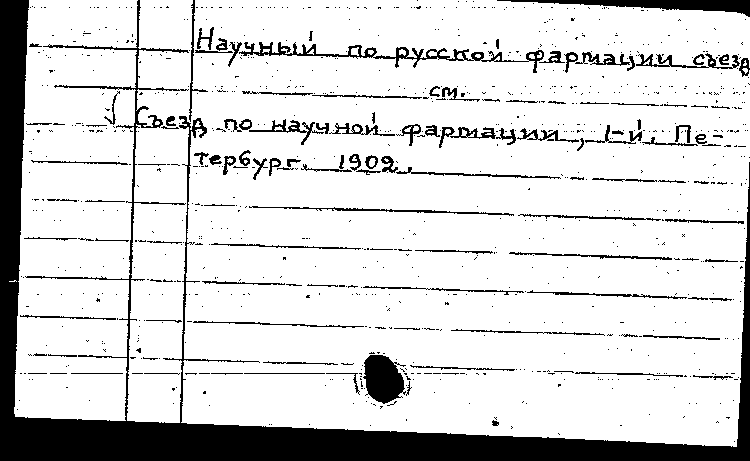 Научный по русской фармации съезд
см.
Съезд по научной фармации, 1-й. Пе-
тербург. 1902.